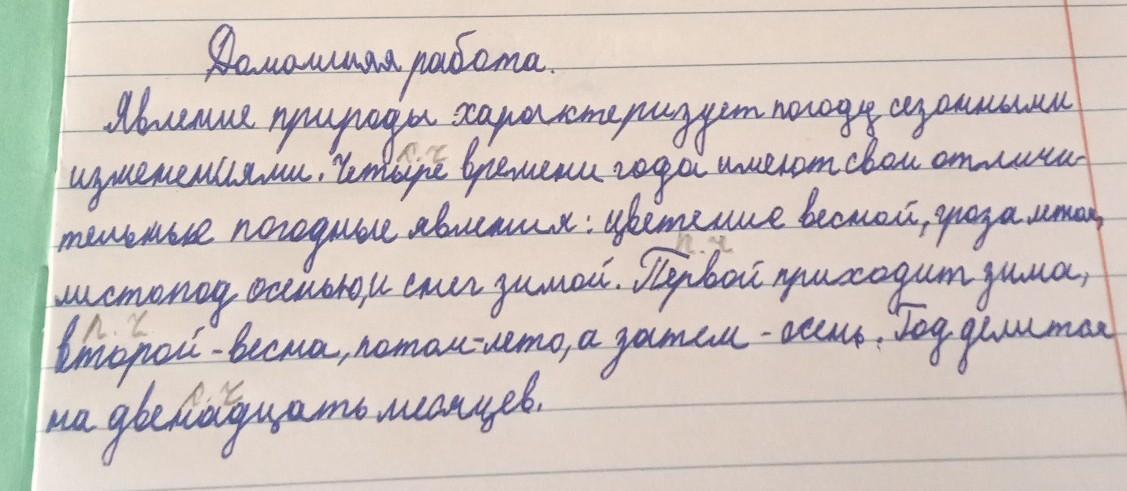 Домашняя работа.
Явление природы характеризует погоду сезонными
п.ч
изменениями. Четыре времени года имеют свои отличи-
тельные погодные явления: цветение весной, гроза летом,
п.ч
листопад осенью, и снег зимой. Первой приходит зима,
п.ч
второй - весна, потом - лето, а затем - осень. Год делится
п.ч
на двенадцать месяцев.